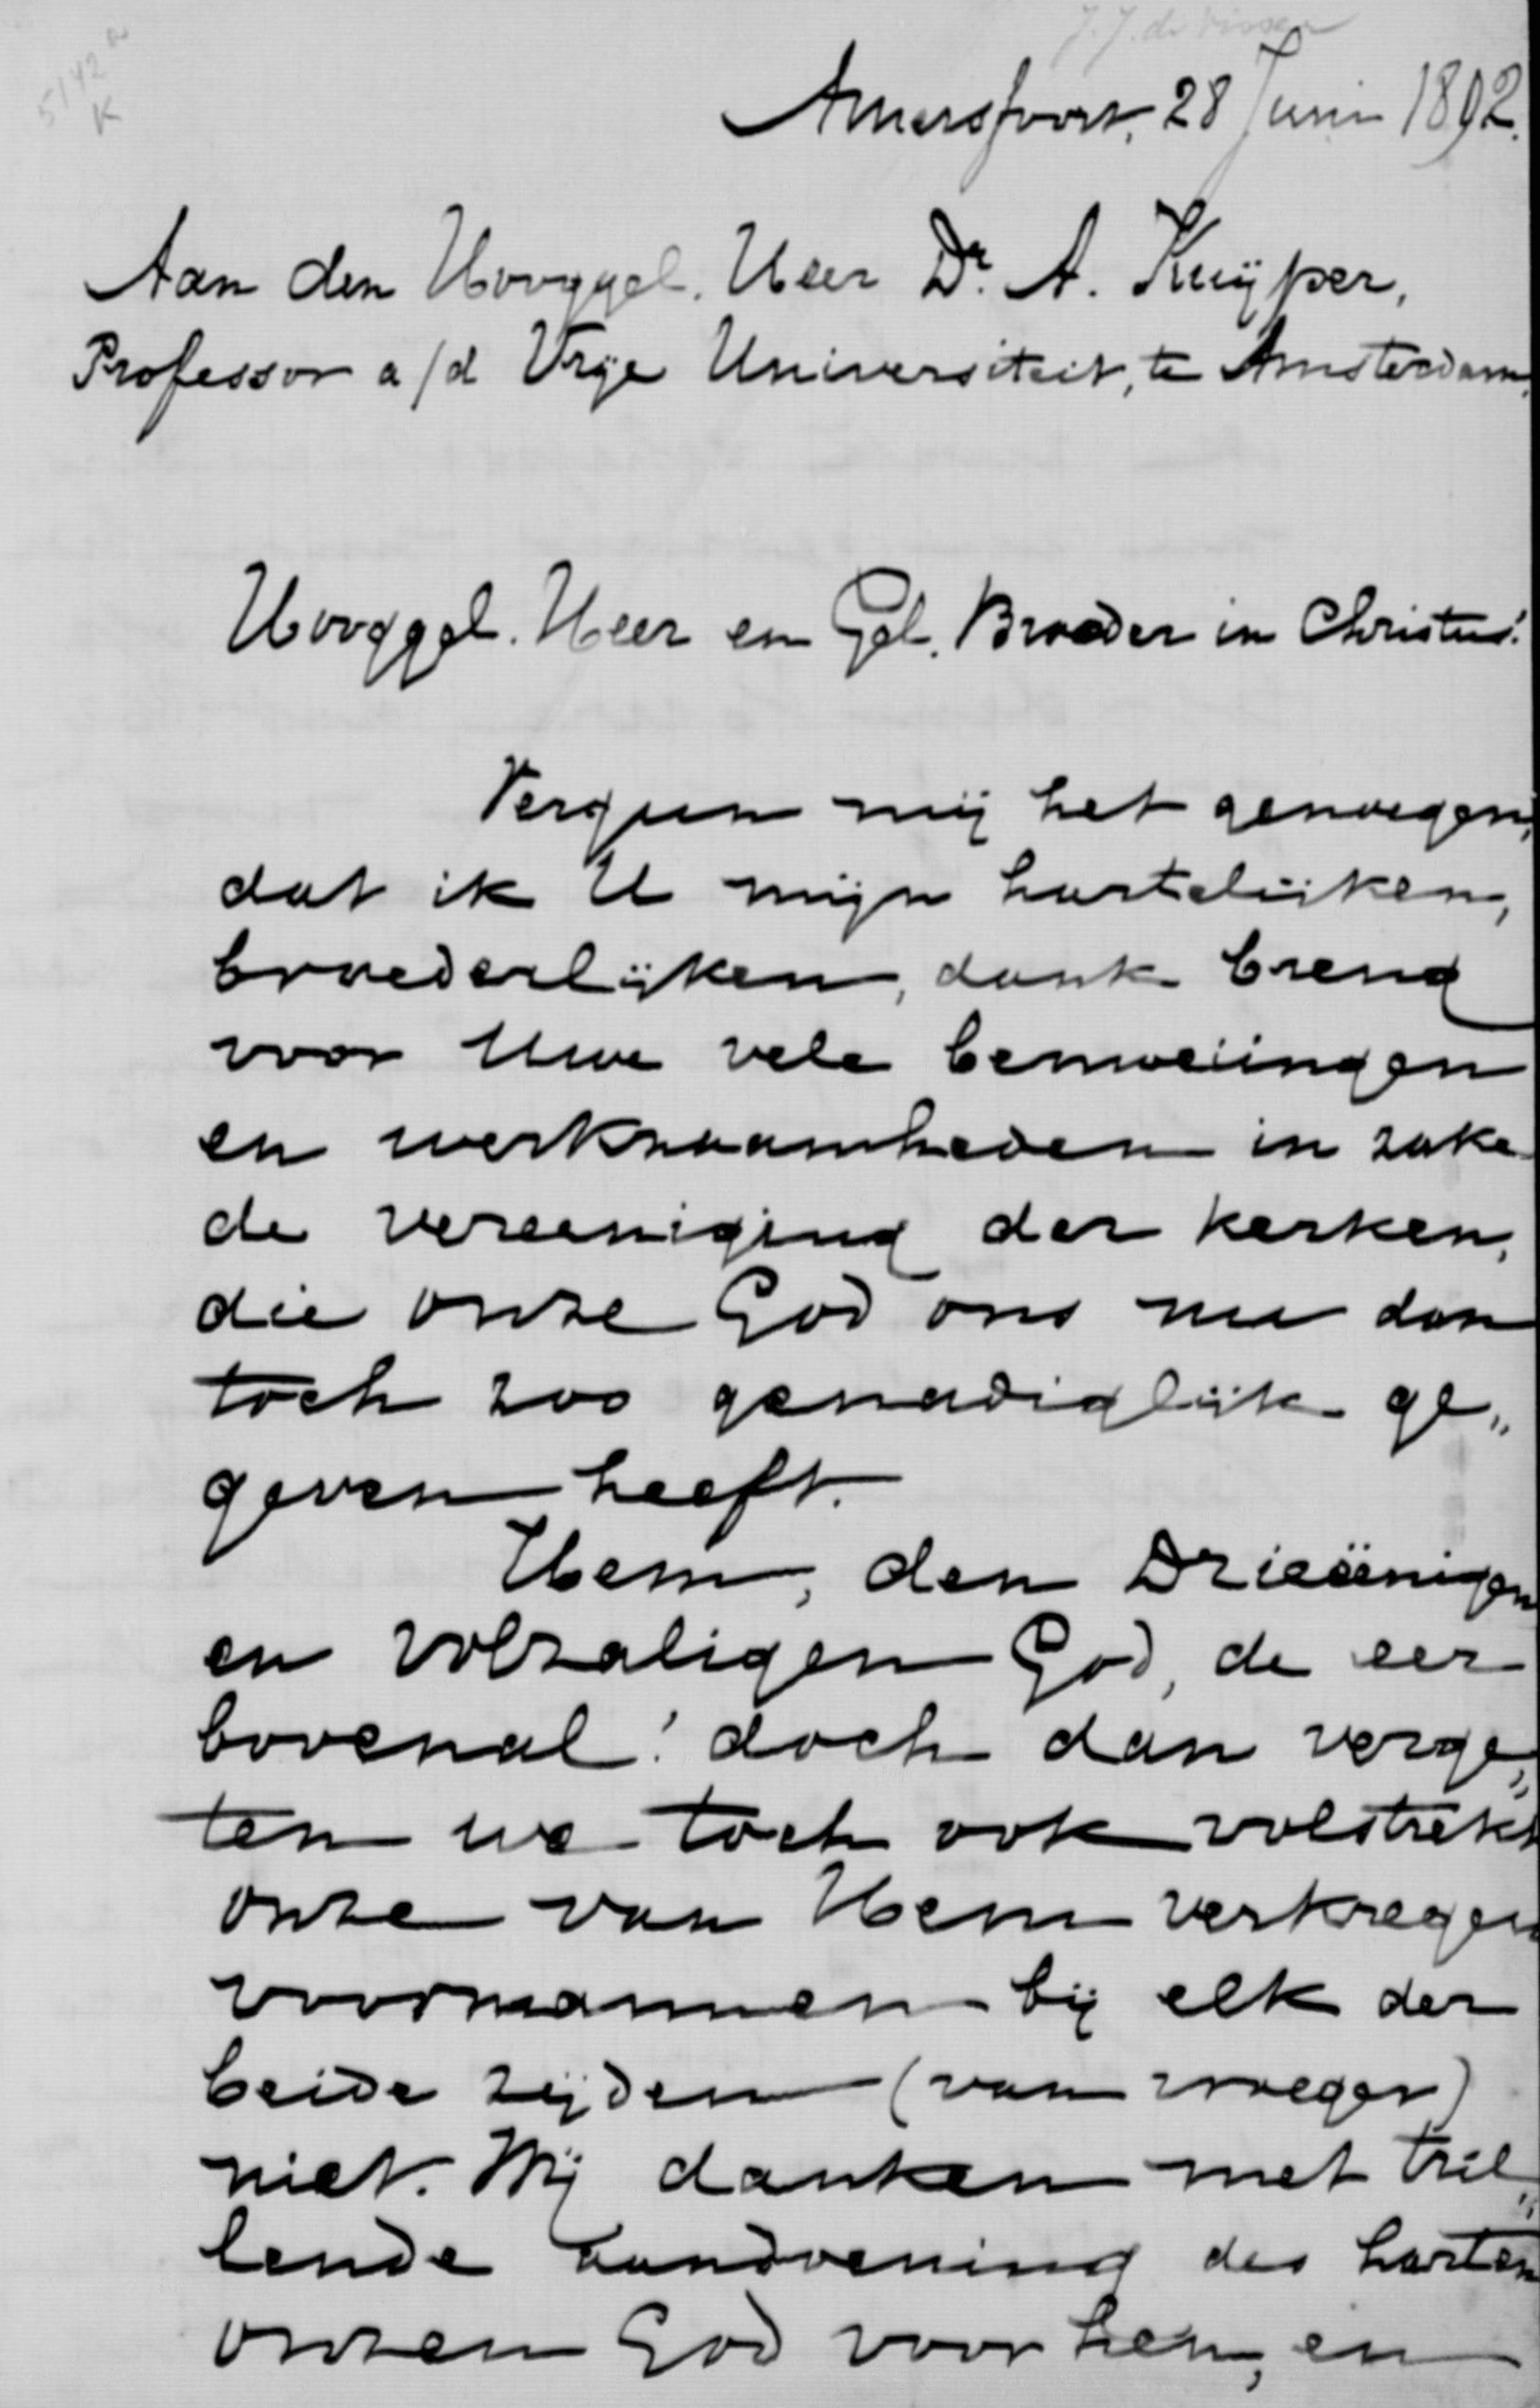 J. J. de Visser
5142
K
Amersfoort, 28 Juni 1892.
Aan den Hooggel. Heer Dr. A. Kuÿper,
Professor a/d Vrije Universiteit, te Amsterdam.
Hooggel. Heer en Gel. Broeder in Christus!
Vergun mij het genoegen,
dat ik U mijn hartelijken,
broederlijken, dank breng
voor Uwe vele bemoeiingen
en werkzaamheden in zake
de vereeniging der kerken,
die onze God ons nu dan
toch zoo genadiglijk ge„
geven heeft.
Hem, den Drieëenigen
en volzaligen God, de eer
bovenal! doch dan verge„
ten we toch ook volstrekt
onze van Hem verkregen
voormannen bij elk der
beide zijden (van vroeger)
niet. Wij danken met tril„
lende aandoening des harten
onzen God voor hen, en